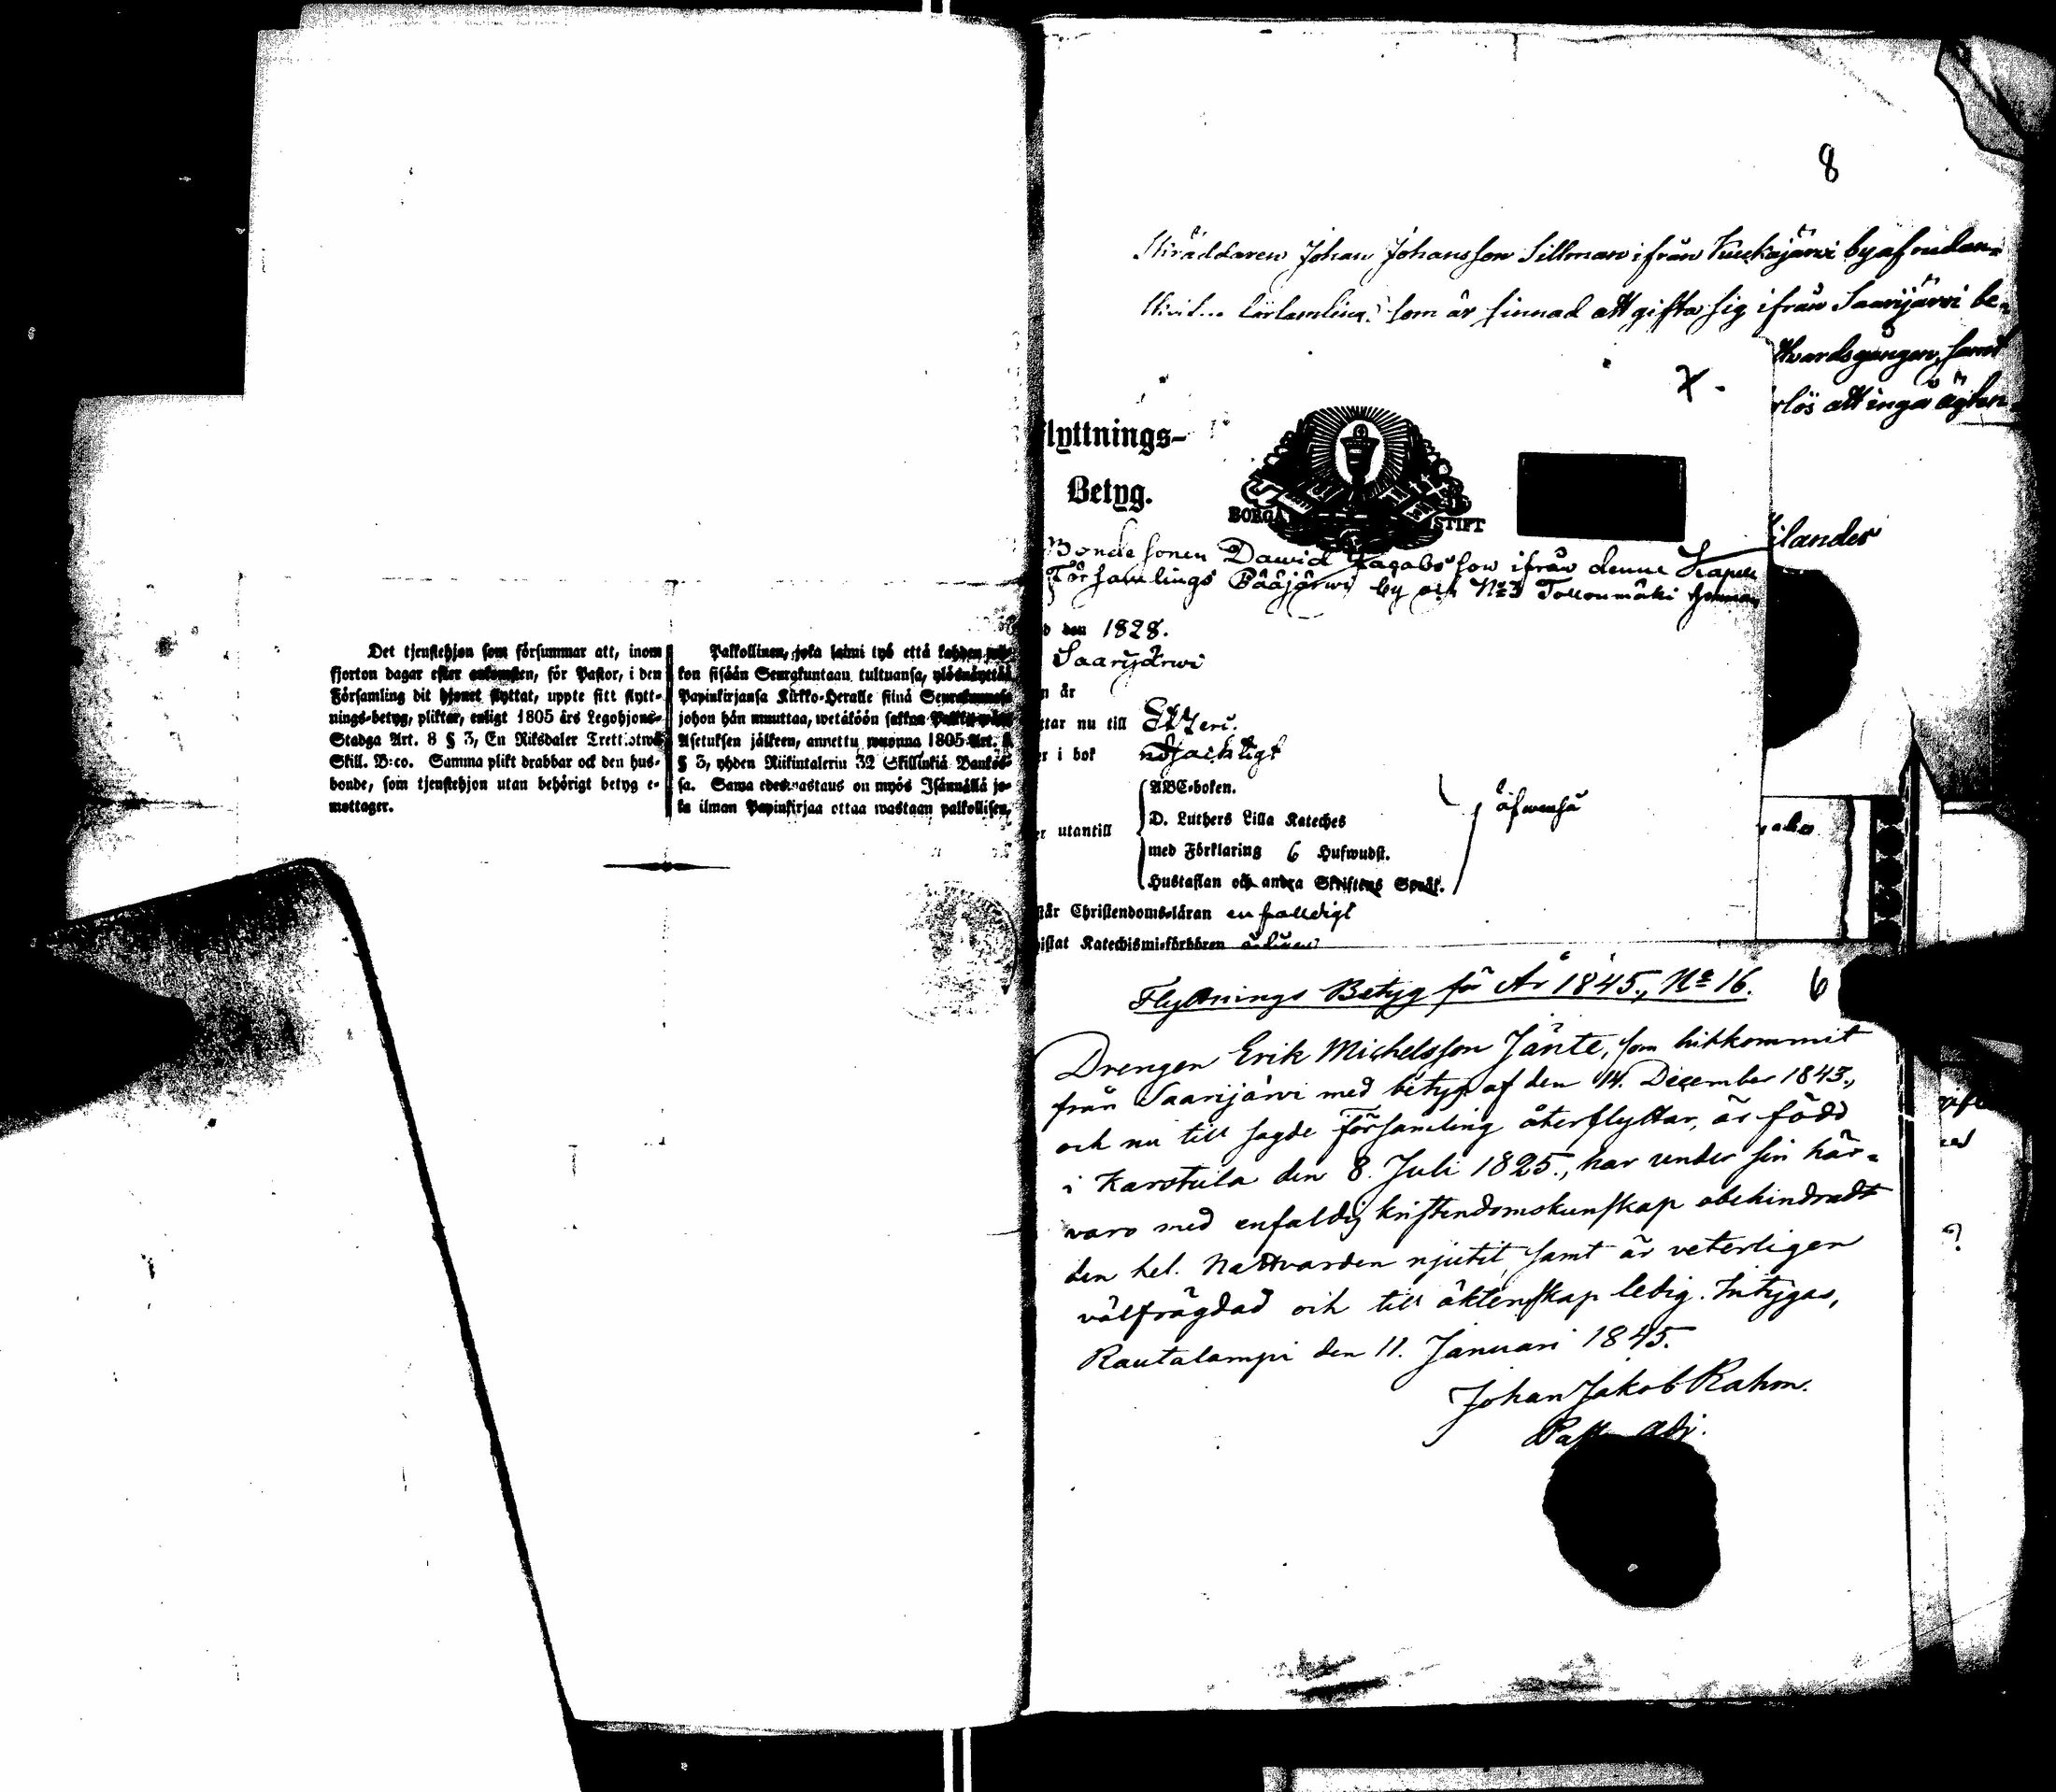 Det tjenstehjon som försummar att, inom
fjorton dagar efter ankomsten, för Pastor, i den
Församling dit hjonet flyttat, uppte sitt flytt-
nings-betyg, pliktar, enligt 1805 års Legohjons-
Stadga Art. 8 § 3, En Riksdaler Trettiotwå
Skill. B:co. Samma plikt drabbar ock den hus-
bonde, som tjenstehjon utan behörigt betyg e-
mottager.
Palkollinen, joka laimi lyö että kahden
kon sisään Seurakuntaan tultuansa, ylösnäyttää
Papinkirjansa Kirkko-Heralle siinä
johon hän muuttaa, wetäköön sakkoa
Asetuksen jälkeen, annettu wuonna 1805 Art.
§ 3, yhden Riikintalerin 32 Skillinkiä Bankos-
sa. Sama edeswastaus on myös Isännällä jo-
ka ilman Papinkirjaa ottaa wastaan palkollisen.
8
Skräddaren Johan Johansson Sillman ifrån Kuckajärvi by af nedan-
som är sinnad att gifta sig ifrån Saarijärvi be-
ttvardsgången, samt
rlös att ingå ägten-
7.
flyttnings-
Betyg.
BORGÅ STIFT
ilander
Bondesonen Dawid Jagabsson ifrån denne Kapell
Församlings Pääjärwi by och No 3 hemman
d den 1828.
Saarijärwi
n år
ttar nu till Etzeri.
er i bok nödjachtigt
ABC-boken.
D. Luthers Lilla Kateches
er utantill
med Förklaring 6 Hufwudst.
Hustaflan och andra Skriftens Språk.
äfwenså
står Christendoms-läran enfalldigt
istat Katechismi-förhören
Flyttnings Betyg för År 1845., No 16.
6
Drengen Erik Michelsson Jänte, som hitkommit
från Saarijärvi med betyg af den 14. December 1843.,
och nu till sagde församling återflyttar, är född
i Karstula den 8. Juli 1825., har under sin här-
varo med enfaldig kristendomskunskap obehindradt
den hel. Nattvarden njutit, samt är veterligen
välfrägdad och till äktenskap ledig. Intygas,
Rautalampi den 11. Januari 1845.
Johan Jakob Rahm.
Past. Adj.